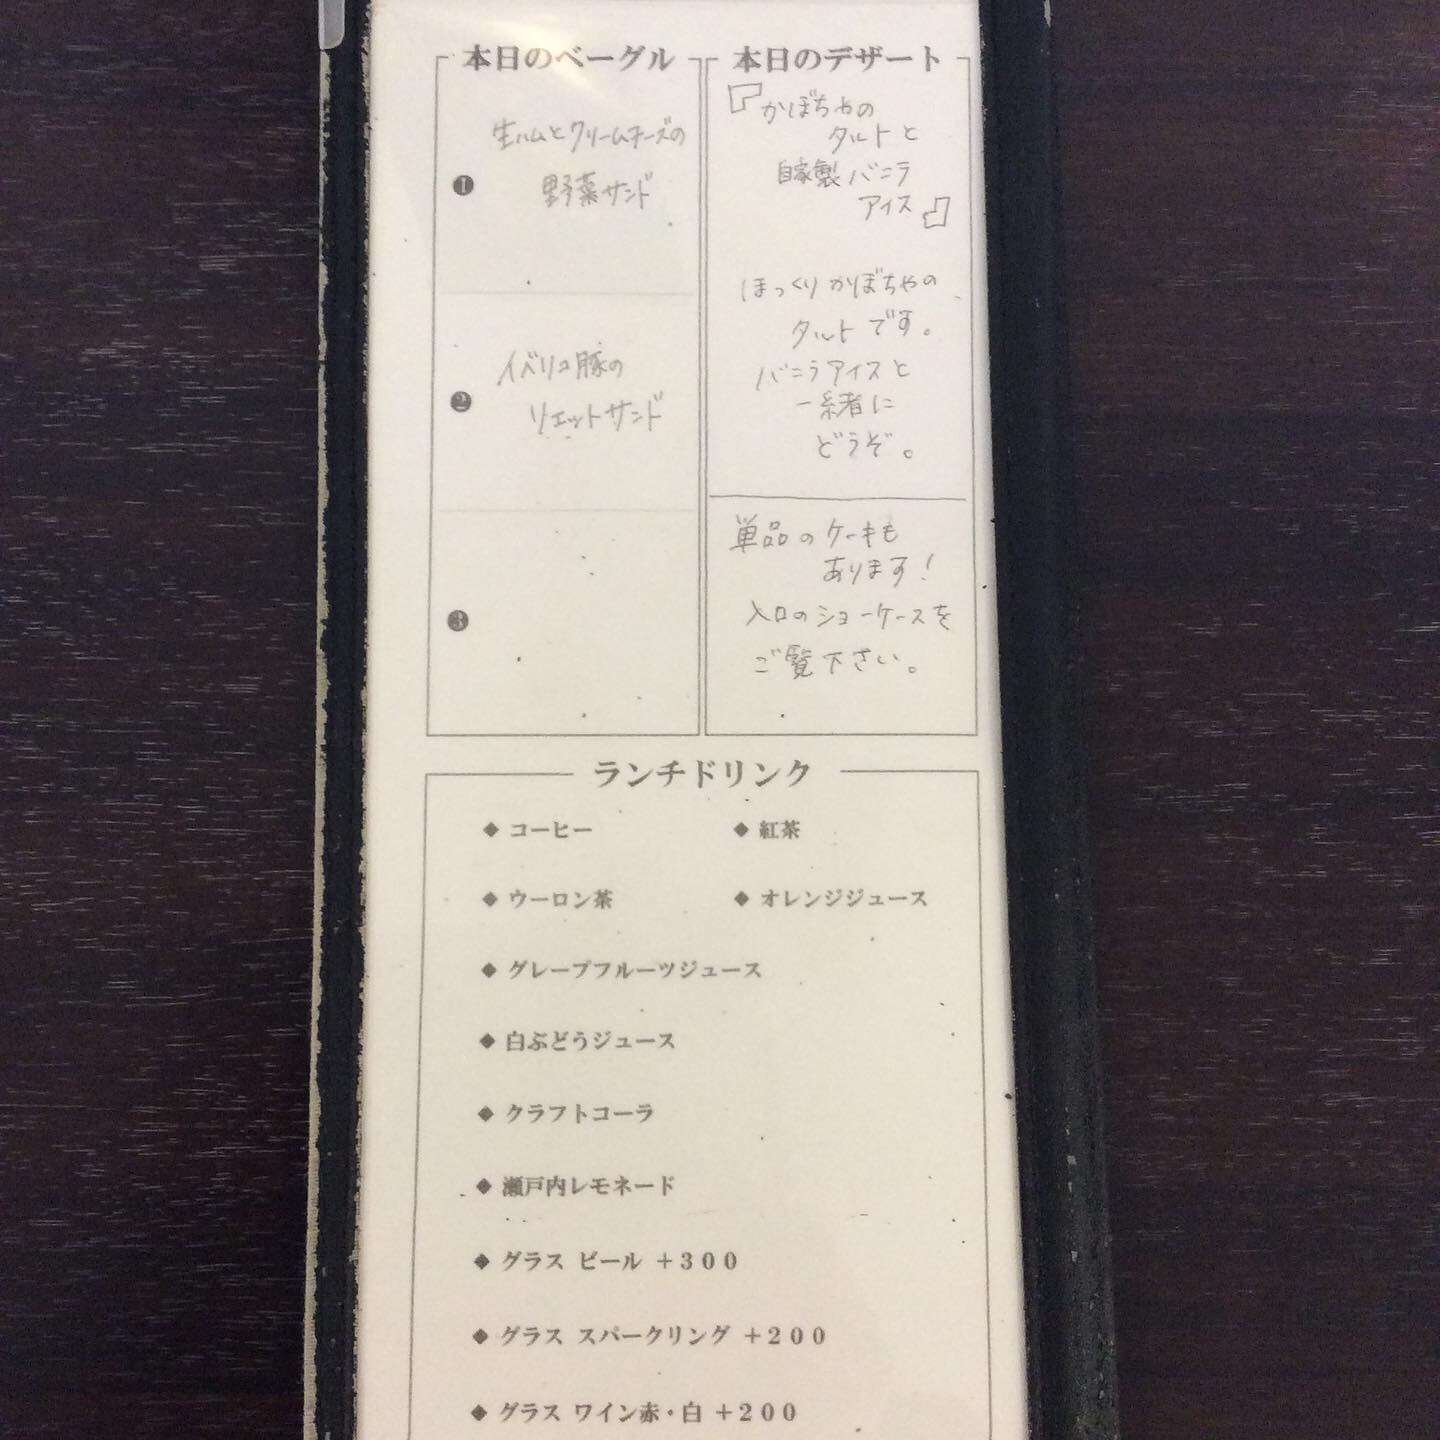 本日のベーグル
❶
生ハムとクリームチーズの
野菜サンド
❷
イベリコ豚の
リエットサンド
❸
本日のデザート
『かぼちゃの
タルトと
自家製バニラ
アイス』
ほっくりかぼちゃの
タルトです。
バニラアイスと
一緒に
どうぞ。
単品のケーキも
あります!
入口のショーケースを
ご覧下さい。
ランチドリンク
◆ コーヒー
◆ 紅茶
◆ ウーロン茶
◆ オレンジジュース
◆ グレープフルーツジュース
◆ 白ぶどうジュース
◆ クラフトコーラ
◆ 瀬戸内レモネード
◆ グラス ビール +300
◆ グラス スパークリング +200
◆ グラス ワイン赤・白 +200